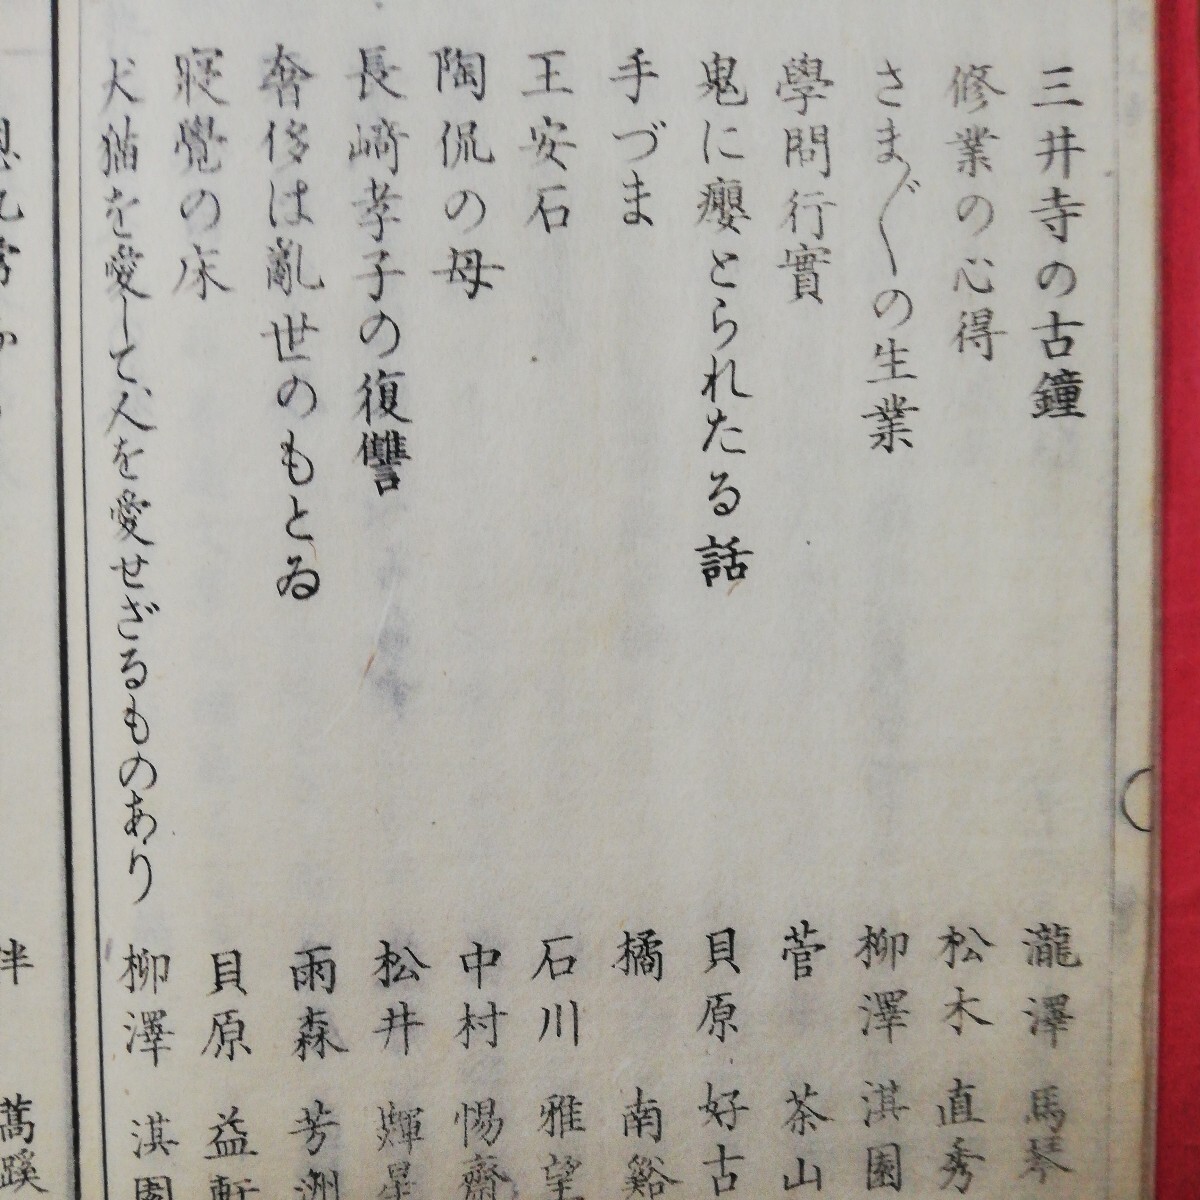 三井寺の古鐘 瀧澤 馬琴
修業の心得 松木 直秀
さま〴〵の生業 柳澤 淇園
學問行實 菅 茶山
鬼に癭とられたる話 貝原 好古
手づま 橘 南谿
王安石 石川 雅望
陶侃の母 中村 惕齋
長崎孝子の復讐 松井 輝星
奢侈は亂世のもとゐ 雨森 芳洲
寢覺の床 貝原 益軒
犬猫を愛して、人を愛せざるものあり 柳澤 淇園
伴 蒿蹊